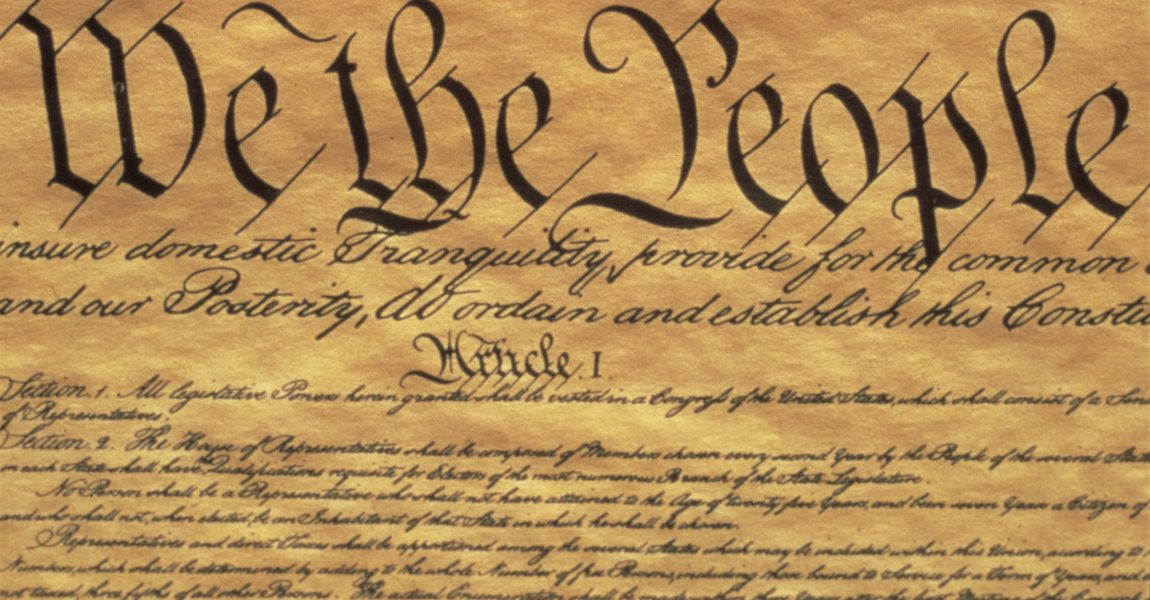 We the People
insure domestic Tranquility, provide for the common
and our Posterity, do ordain and establish this Constitu
Article. I.
Section. 1. All legislative Powers herein granted shall be vested in a Congress of the United States, which shall consist of a Sen
of Representatives.
Section. 2. The House of Representatives shall be composed of Members chosen every second Year by the People of the several State
in each State shall have Qualifications requisite for Electors of the most numerous Branch of the State Legislature.
No Person shall be a Representative who shall not have attained to the Age of twenty five Years, and been seven Years a Citizen of
and who shall not, when elected, be an Inhabitant of that State in which he shall be chosen.
Representatives and direct Taxes shall be apportioned among the several States which may be included within this Union, according to
Numbers, which shall be determined by adding to the whole Number of free Persons, including those bound to Service for a Term of Years, and
not taxed, three fifths of all other Persons. The actual Enumeration shall be made within three Years after the first Meeting of the Congress